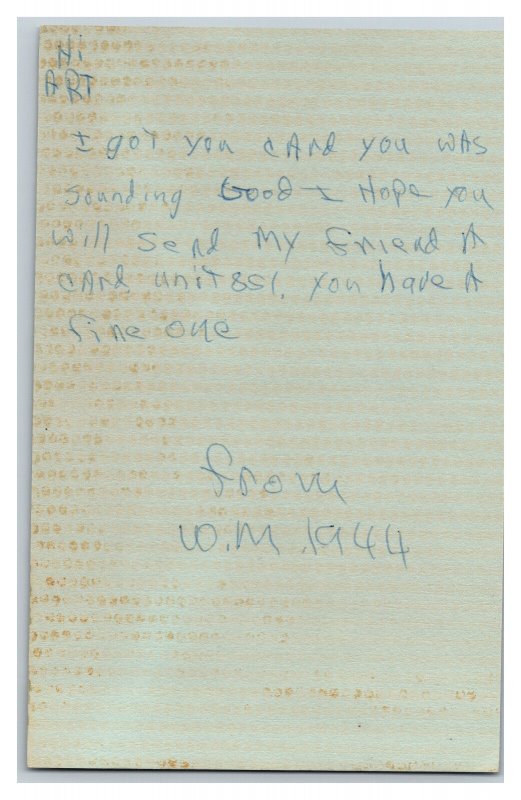 Hi
ART
I got you cArd you wAs
sounding Good I Hope you
will send My friend A
cArd unit 851. you have A
fine one
from
W.M.1944